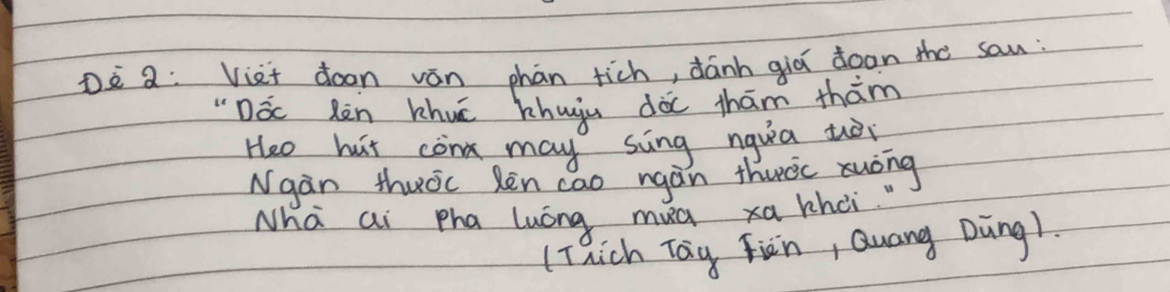 Đề 2: Viết đoạn văn phân tích, đánh giá đoạn thơ sau:
"Dốc lên khúc khuỷu dốc thăm thẳm
Heo hút cồn may súng ngửa trời
Ngàn thước lên cao ngàn thước xuống
Nhà ai Pha luông mưa xa khơi."
(Trích Tây Tiến, Quang Dũng).